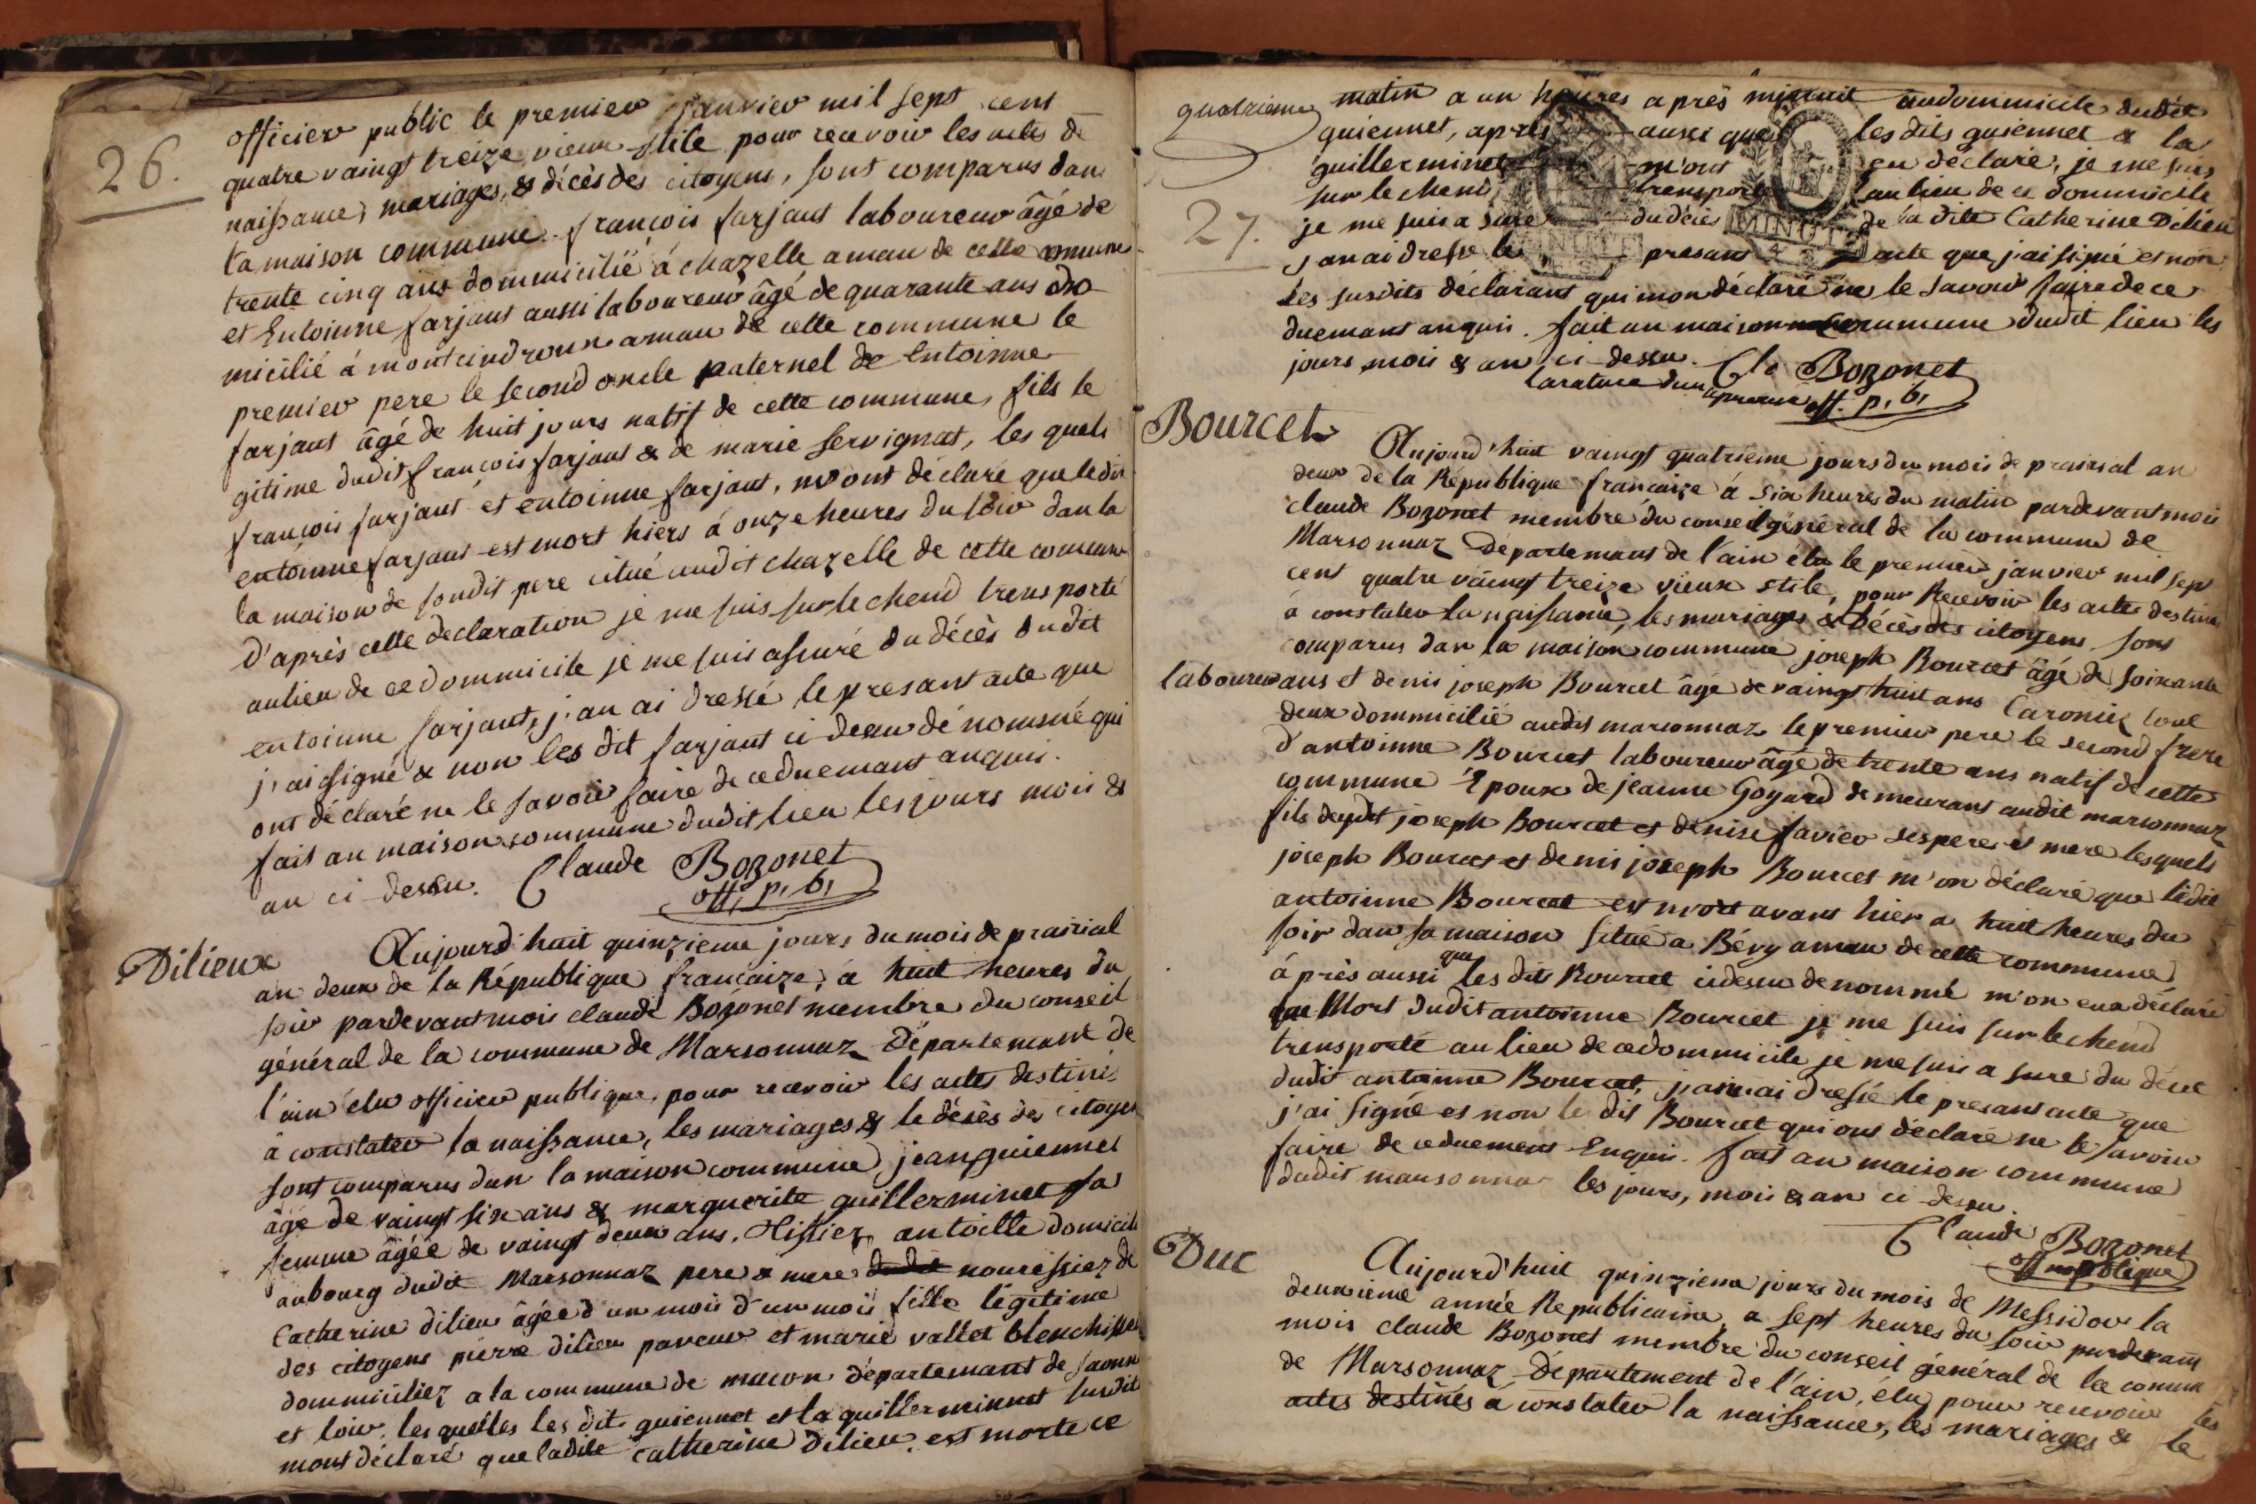 26.
officier public le premier janvier mil sept cent
quatre vaingt treize vieux stile pour recevoir les actes de
naissance, mariages, & décès des citoyens, sont comparus dans
la maison commune françois farjaut laboureur âgé de
trente cinq ans dommicilié á chazelle amau de cette commune
et Entoinne farjaut aussi laboureur âgé de quarante ans do
micilié á montcindroux amau de cette commune le
premier pere le second oncle paternel de Entoinne
farjaut âgé de huit jours natif de cette commune, fils le
gitime dudit françois farjaut & de marie servignat, les quels
françois farjaut et entoinne farjaut, m'ont déclaré que ledit
entoinne farjaut est mort hiers á onze heures du soir dan la
la maison de sondit pere citué audit chazelle de cette commune
d'après cette declaration je me suis sur le chend trensporté
au lieu de ce dommicile je me suis assuré du décès dudit
entoinne farjaut, j'an ai dressé le presant acte que
j'ai signé & non les dit farjaut ci desu dénommé qui
ont déclaré ne le savoir faire de ceduemant anquis.
fait an maison commune dudit lieu les jours mois &
an ci desu. Claude Bozonet
off, p, b,
Dilieux
Aujourd'huit quinzieme jours du mois de prairial
an deux de la République françaize, a huit heures du
soir pardevant mois claude Bozonet membre du conseil
général de la commune de Marsonnaz Département de
l'ain élu officier publique, pour recevoir les actes destinés
à constater la naissance, les mariages & le désès des citoyen
sont comparus dan la maison commune jean guiennet
âgé de vaingt six ans & marguerite guillerminet sa
femme âgée de vaingt deux ans, Tissiez antoille domicili
au bourg dudit Marsonnaz pere & mere dudit nouressiez de
Catherine dilieu âgée d'un mois d'un mois fille légitime
des citoyens pierre dilieu paveur et marie vallet blenchisse
dommiciliez a la commune de macon département de saonne
et loir, les quelles les dit guiennet et la guillerminet susdit
mont déclaré que ladite Catherine Dilieu, est morte ce
quatrieme
27.
matin a un heures après minuit audommicile dudit
guiennet, après aussi que les dits guiennet & la
guillerminet m'ont en déclaré, je me suis
sur le chend, trensporté au lieu de ce dommicile
je me suis a sure du décès de la dite Catherine Dilieu
j'an ai dressé le presant acte que j'ai signé et non
les susdits déclarant qui mon déclaré ne le savoir faire de ce
duemant anquis. fait an maison commune dudit lieu les
jours mois & an ci-dessu. Cle Bozonet
off. p, b,
MINUTE
Bourcet
Aujourd'huit vaingt quatrieme jours du mois de prairial an
deux de la République françaize á six heures du matin pardevant mois
claude Bozonet membre du conseil général de la commune de
Marsonnaz Département de l'ain élu le premier janvier mil sept
cent quatre vaingt treize vieux stile, pour Recevoir les actes destiné
à constater la naissance, les mariages & décès des citoyens sont
comparus dan la maison commune joseph Bourcet âgé de soixante
laboureur
ans et denis joseph Bourcet âgé de vaingt huit ans tout
deux dommicilié audit marsonnaz le premier pere le second frere
d'antoinne Bourcet laboureur âgé de trente ans natif de cette
commune Epoux de jeanne Goyard demeurant audit marsonnaz
fils dudit joseph Bourcet et denise favier ses pere et mere lesquels
joseph Bourcet et denis joseph Bourcet m'on déclaré que ledit
antoinne Bourcet est mort avant hier a huit heures du
soir dan sa maison situé a Bévy amau de cette commune
áprès aussi que les dits Bourcet cidesu denommé m'on eux déclaré
Mort dudit antoinne Bourcet je me suis sur le chend
trensporté au lieu de ce dommicile je me suis a sure du décé
dudit antoinne Bourcet, j'an ai dressé le presant acte que
j'ai signé et non le dit Bourcet qui ont déclaré ne le savoir
faire de ceduement Enquis. fait an maison commune
dudit marsonnaz les jours, mois & an ci desu.
Claude Bozonet
Duc
Aujourd'huit quinzieme jours du mois de Messidor la
deuxieme année Republicaine, a sept heures du soir pardevant
mois claude Bozonet membre du conseil général de la commu
de Marsonnaz Département de l'ain, élu pour recevoir les
actes destinés á constater la naissance, les mariages & le